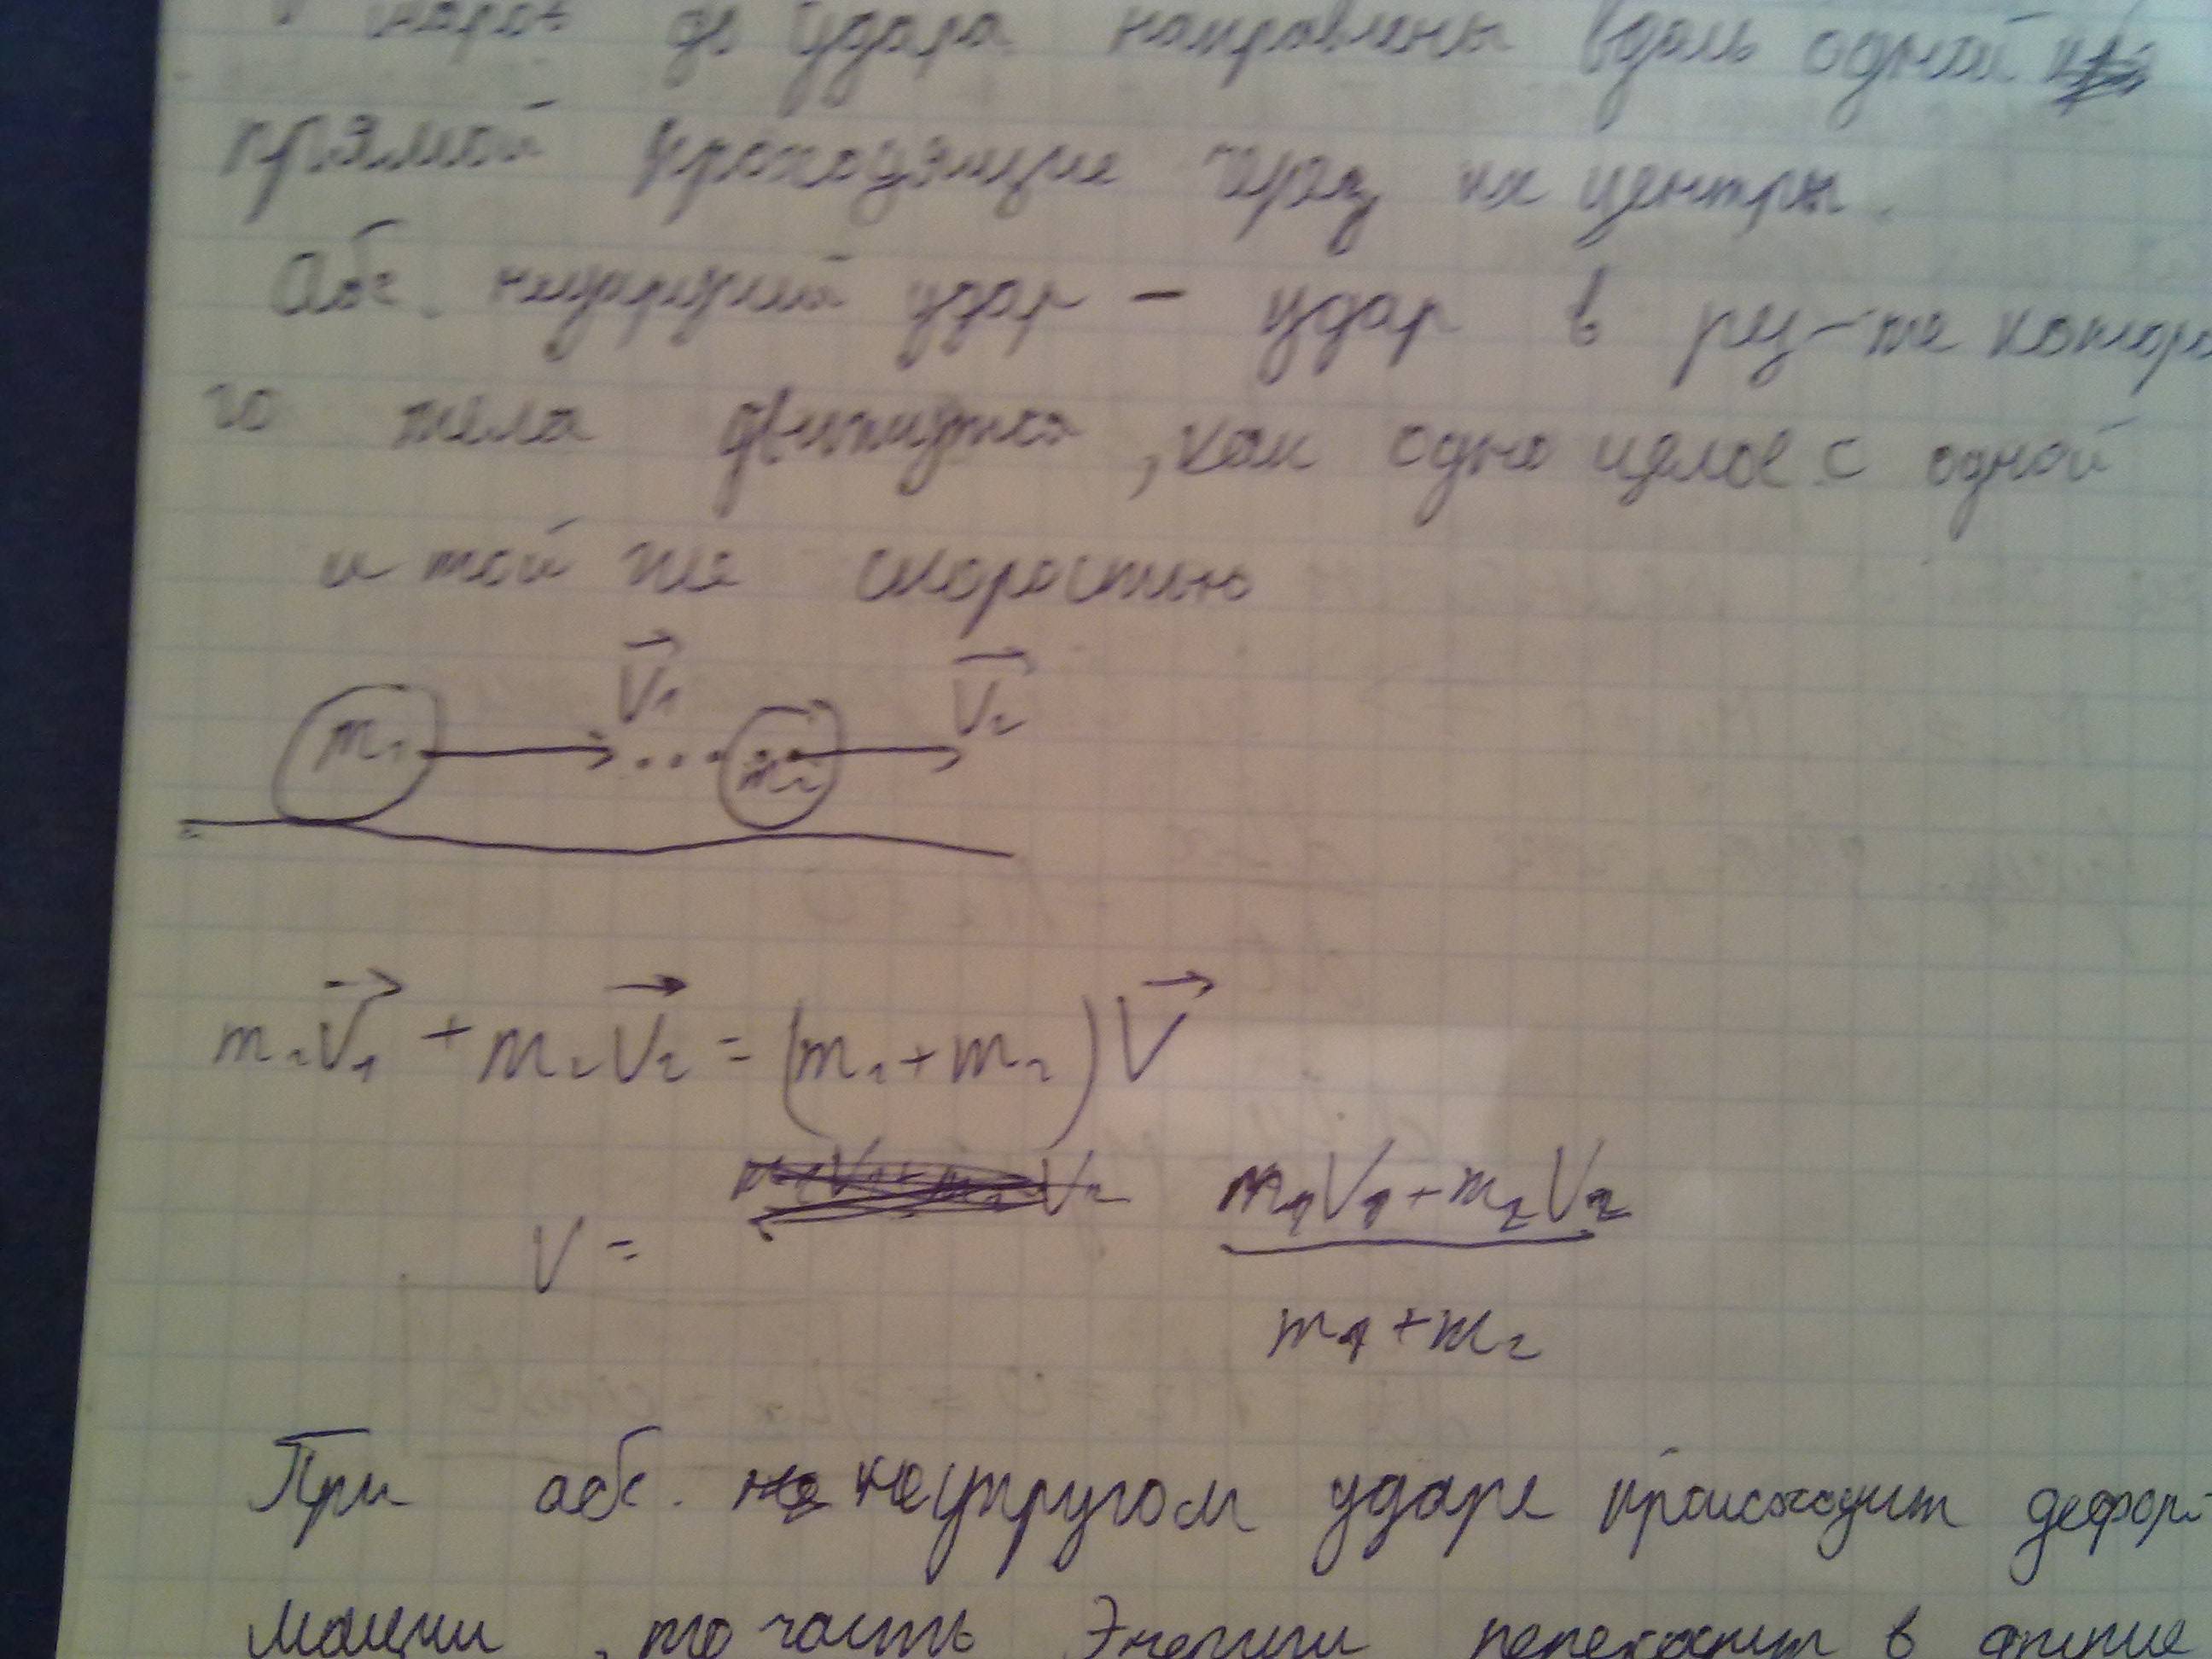 шаров до удара направлены вдоль одной
прямой проходящие через их центры.
Абс. неупругий удар – удар в рез-те которо
го тела движутся, как одно целое с одной
и той же скоростью
V⃗₁ V⃗₂
m₁ m₂
m₁V⃗₁ + m₂V⃗₂ = (m₁ + m₂)V⃗
V = m₁V₁ + m₂V₂
m₁ + m₂
При абс. неупругом ударе происходит дефор-
мации, то часть энергии переходит в